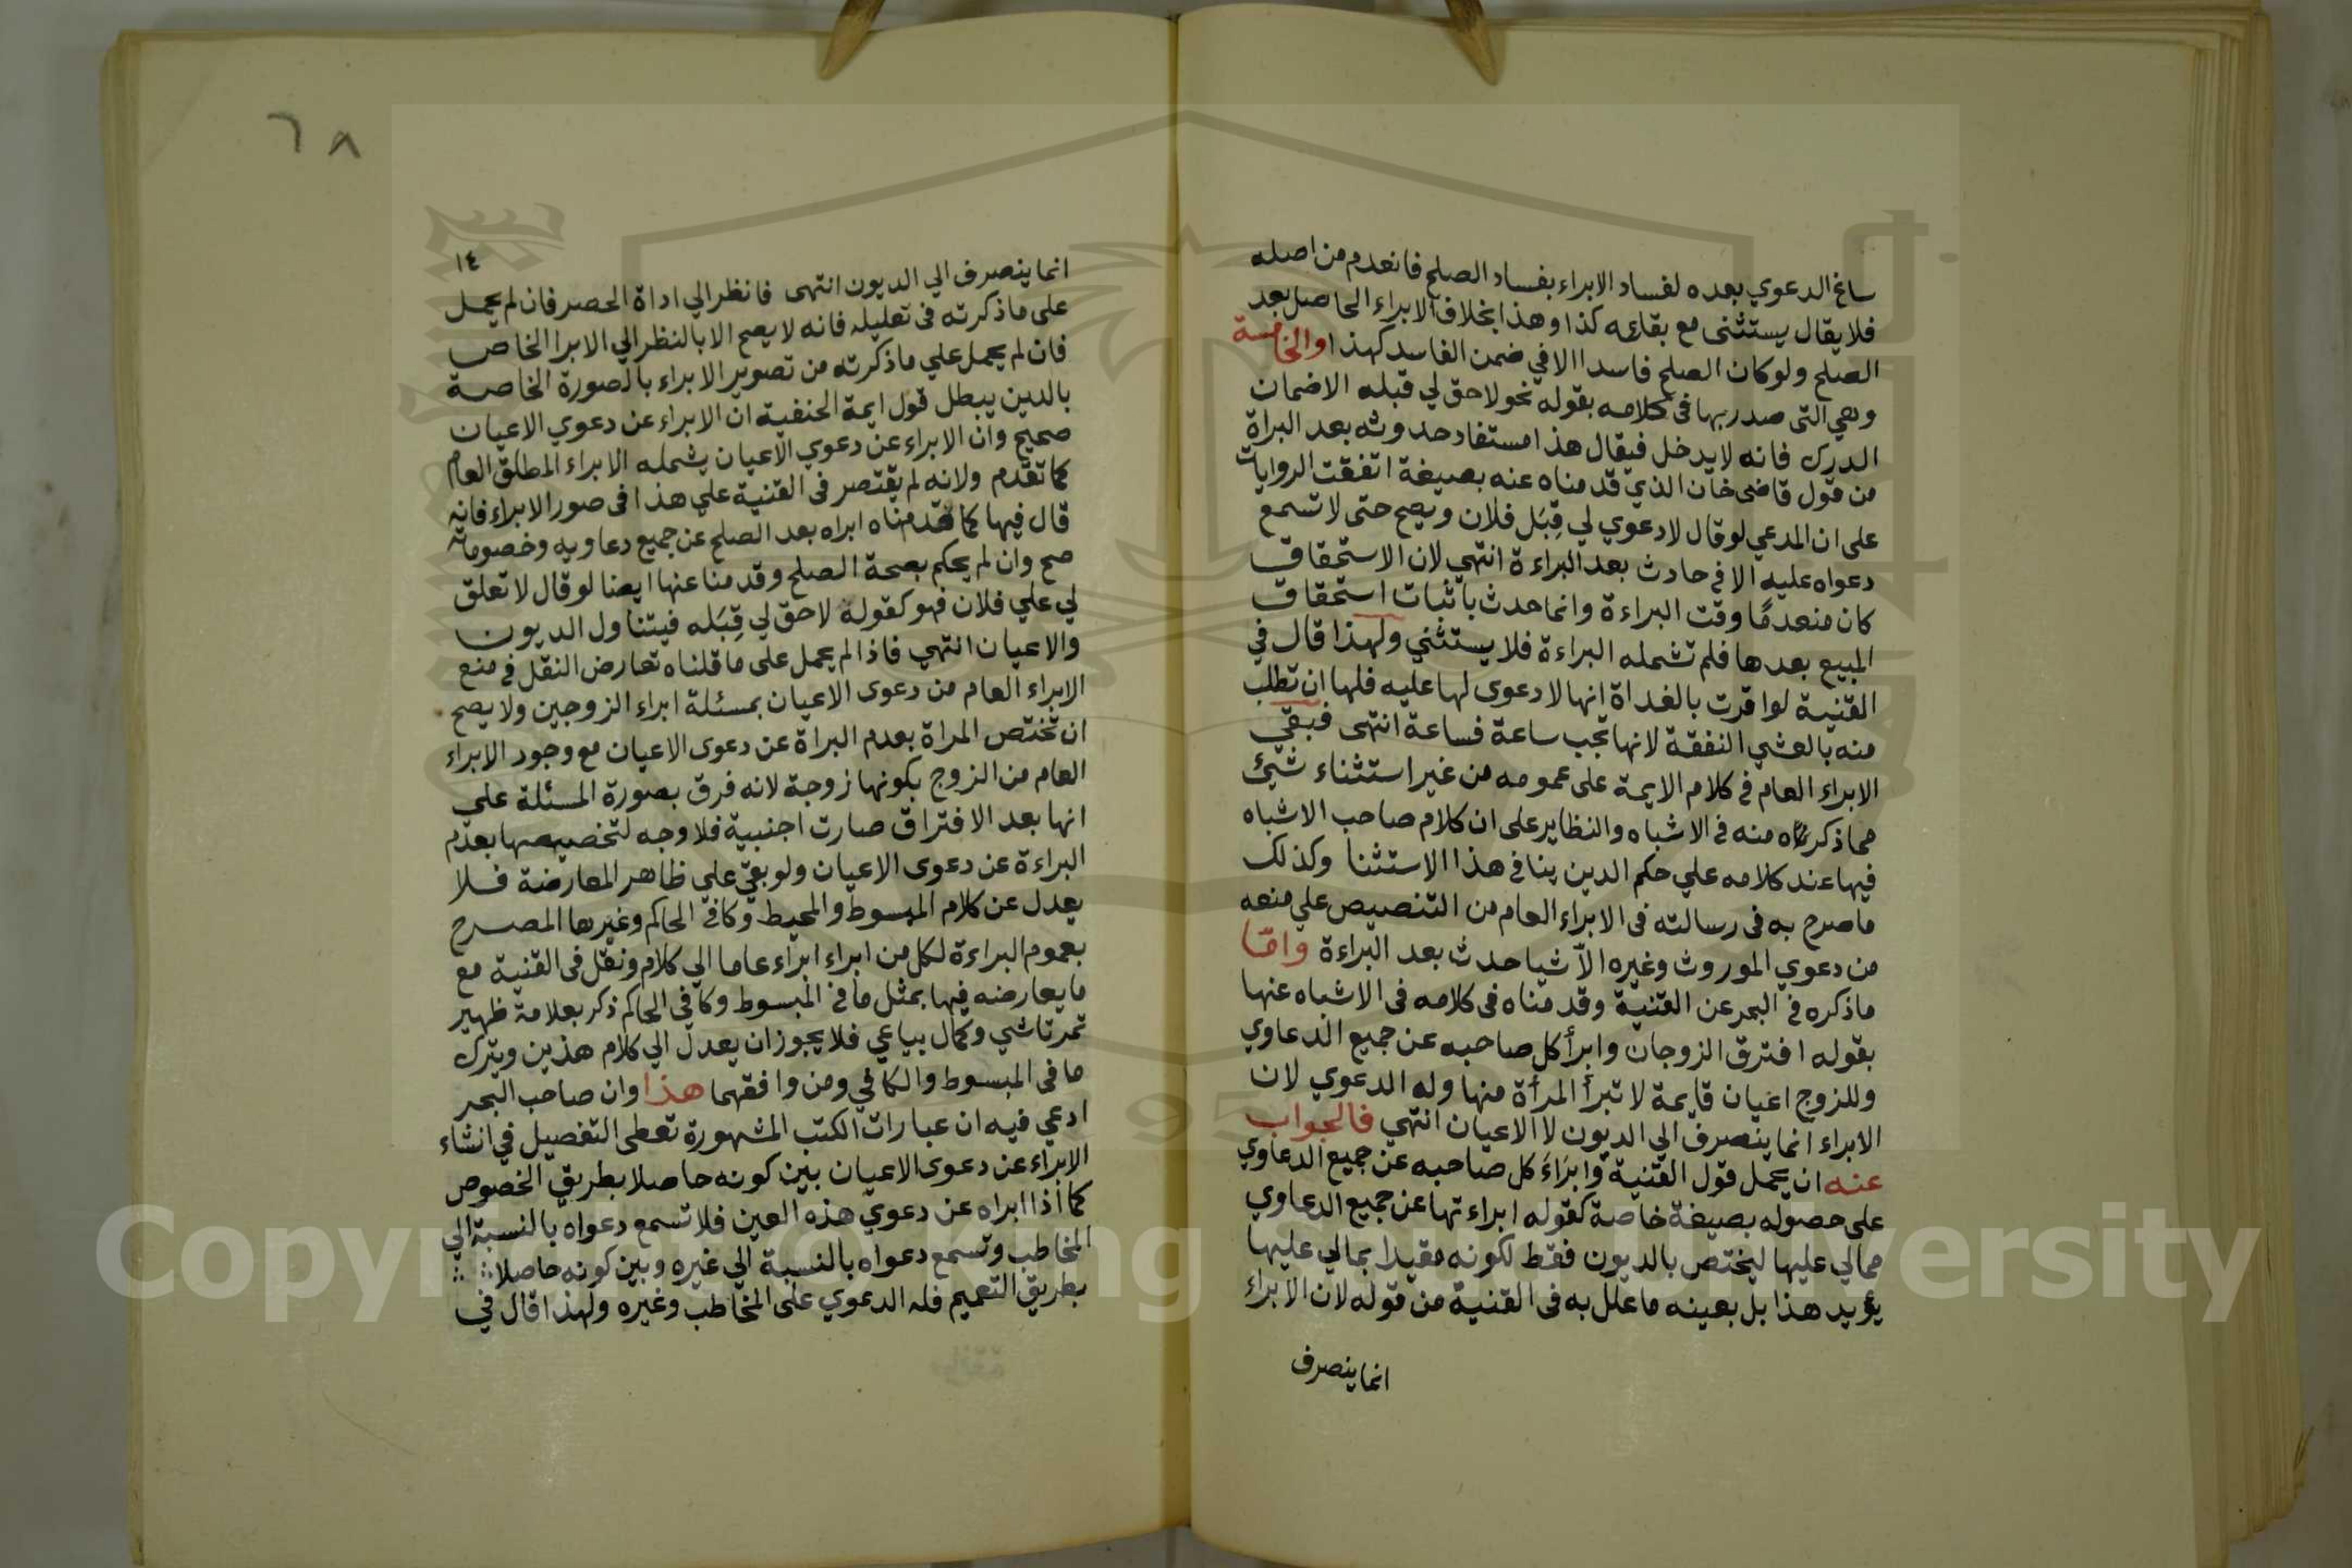 ساغ الدعوي بعده لفساد الابراء بفساد الصلح فانعدم من اصله
فلا يقال يستثنى مع بقائه كذا وهذا بخلاف الابراء الحاصل بعد
الصلح ولو كان الصلح فاسدا الا في ضمن الفاسد كهذا والخامسة
وهي التى صدر بها فى كلامه بقوله نحو لاحق لي قبله الا ضمان
الدرك فانه لا يدخل فيقال هذا مستفاد حدوثه بعد البراة
من قول قاضى خان الذي قدمناه عنه بصيغة اتفقت الروايات
على ان المدعي لو قال لا دعوي لي قِبَل فلان ويصح حتى لا تسمع
دعواه عليه الا في حادث بعد البراءة انتهي لان الاستحقاق
كان منعدمًا وقت البراءة وانما حدث باثبات استحقاق
المبيع بعدها فلم تشمله البراءة فلا يستثني ولهذا قال في
القنية لو اقرت بالغداة انها لا دعوى لها عليه فلها ان تطلب
منه بالعشي النفقة لانها تجب ساعة فساعة انتهى فبقي
الابراء العام في كلام الايمة على عمومه من غير استثناء شيئ
مما ذكرناه منه في الاشباه والنظاير على ان كلام صاحب الاشباه
فيها عند كلامه علي حكم الدين ينافي هذا الاستثنا وكذلك
ما صرح به فى رسالته فى الابراء العام من التنصيص علي منعه
من دعوي الموروث وغيره الا شيا حدث بعد البراءة وامّا
ماذكره في البحر عن القنية وقدمناه فى كلامه فى الاشباه عنها
بقوله افترق الزوجان وابرأ كل صاحبه عن جميع الدعاوي
وللزوج اعيان قايمة لا تبرأ المرأة منها وله الدعوي لان
الابراء انما ينصرف الي الديون لا الاعيان انتهي فالجواب
عنه ان يحمل قول القنية وابرَاءَ كل صاحبه عن جميع الدعاوي
على حصوله بصيغة خاصة كقوله ابراءتها عن جميع الدعاوي
ممالي عليها ليختص بالديون فقط لكونه مقيدا بمالي عليها
يؤيد هذا بل بعينه ما علل به فى القنية من قوله لان الابراء
انما ينصرف
٦٨
١٤
انما ينصرف الي الديون انتهى فانظر الي اداة الحصر فان لم يحمل
على ماذكرته فى تعليله فانه لا يصح الا بالنظر الي الابرا الخاص
فان لم يحمل علي ماذكرته من تصوير الابراء بالصورة الخاصة
بالدين يبطل قول ايمة الحنفية ان الابراء عن دعوي الاعيان
صحيح وان الابراء عن دعوي الاعيان يشمله الابراء المطلق العام
كما تقدم ولانه لم يقتصر فى القنية علي هذا فى صور الابراء فانه
قال فيها كما قدمناه ابراه بعد الصلح عن جميع دعاويه وخصوماته
صح وان لم يحكم بصحة الصلح وقدمنا عنها ايضا لو قال لا تعلق
لي علي فلان فهو كقوله لاحق لي قِبَله فيتناول الديون
والاعيان انتهي فاذا لم يحمل على ما قلناه تعارض النقل في منع
الابراء العام من دعوى الاعيان بمسئلة ابراء الزوجين ولا يصح
ان تختص المراة بعدم البراة عن دعوى الاعيان مع وجود الابراء
العام من الزوج بكونها زوجة لانه فرق بصورة المسئلة علي
انها بعد الافتراق صارت اجنبية فلا وجه لتخصيصها بعدم
البراءة عن دعوى الاعيان ولو بقي علي ظاهر المعارضة فلا
يعدل عن كلام المبسوط والمحيط وكافي الحاكم وغيرها المصرح
بعموم البراءة لكل من ابراء ابراء عاما الي كلام ونقل فى القنية مع
ما يعارضه فيها بمثل ما في المبسوط وكافي الحاكم ذكر بعلامة ظهير
تمرتاشي وكمال بياعي فلا يجوز ان يعدل الي كلام هذين ويترك
ما فى المبسوط والكافي ومن وافقهما هذا وان صاحب البحر
ادعي فيه ان عبارات الكتب المشهورة تعطى التفصيل في انشاء
الابراء عن دعوى الاعيان بين كونه حاصلا بطريق الخصوص
كما اذا ابراه عن دعوي هذه العين فلا تسمع دعواه بالنسبة الي
المخاطب وتسمع دعواه بالنسبة الي غيره وبين كونه حاصلا
بطريق التعميم فله الدعوي على المخاطب وغيره ولهذا قال في
Copyright © King Saud University